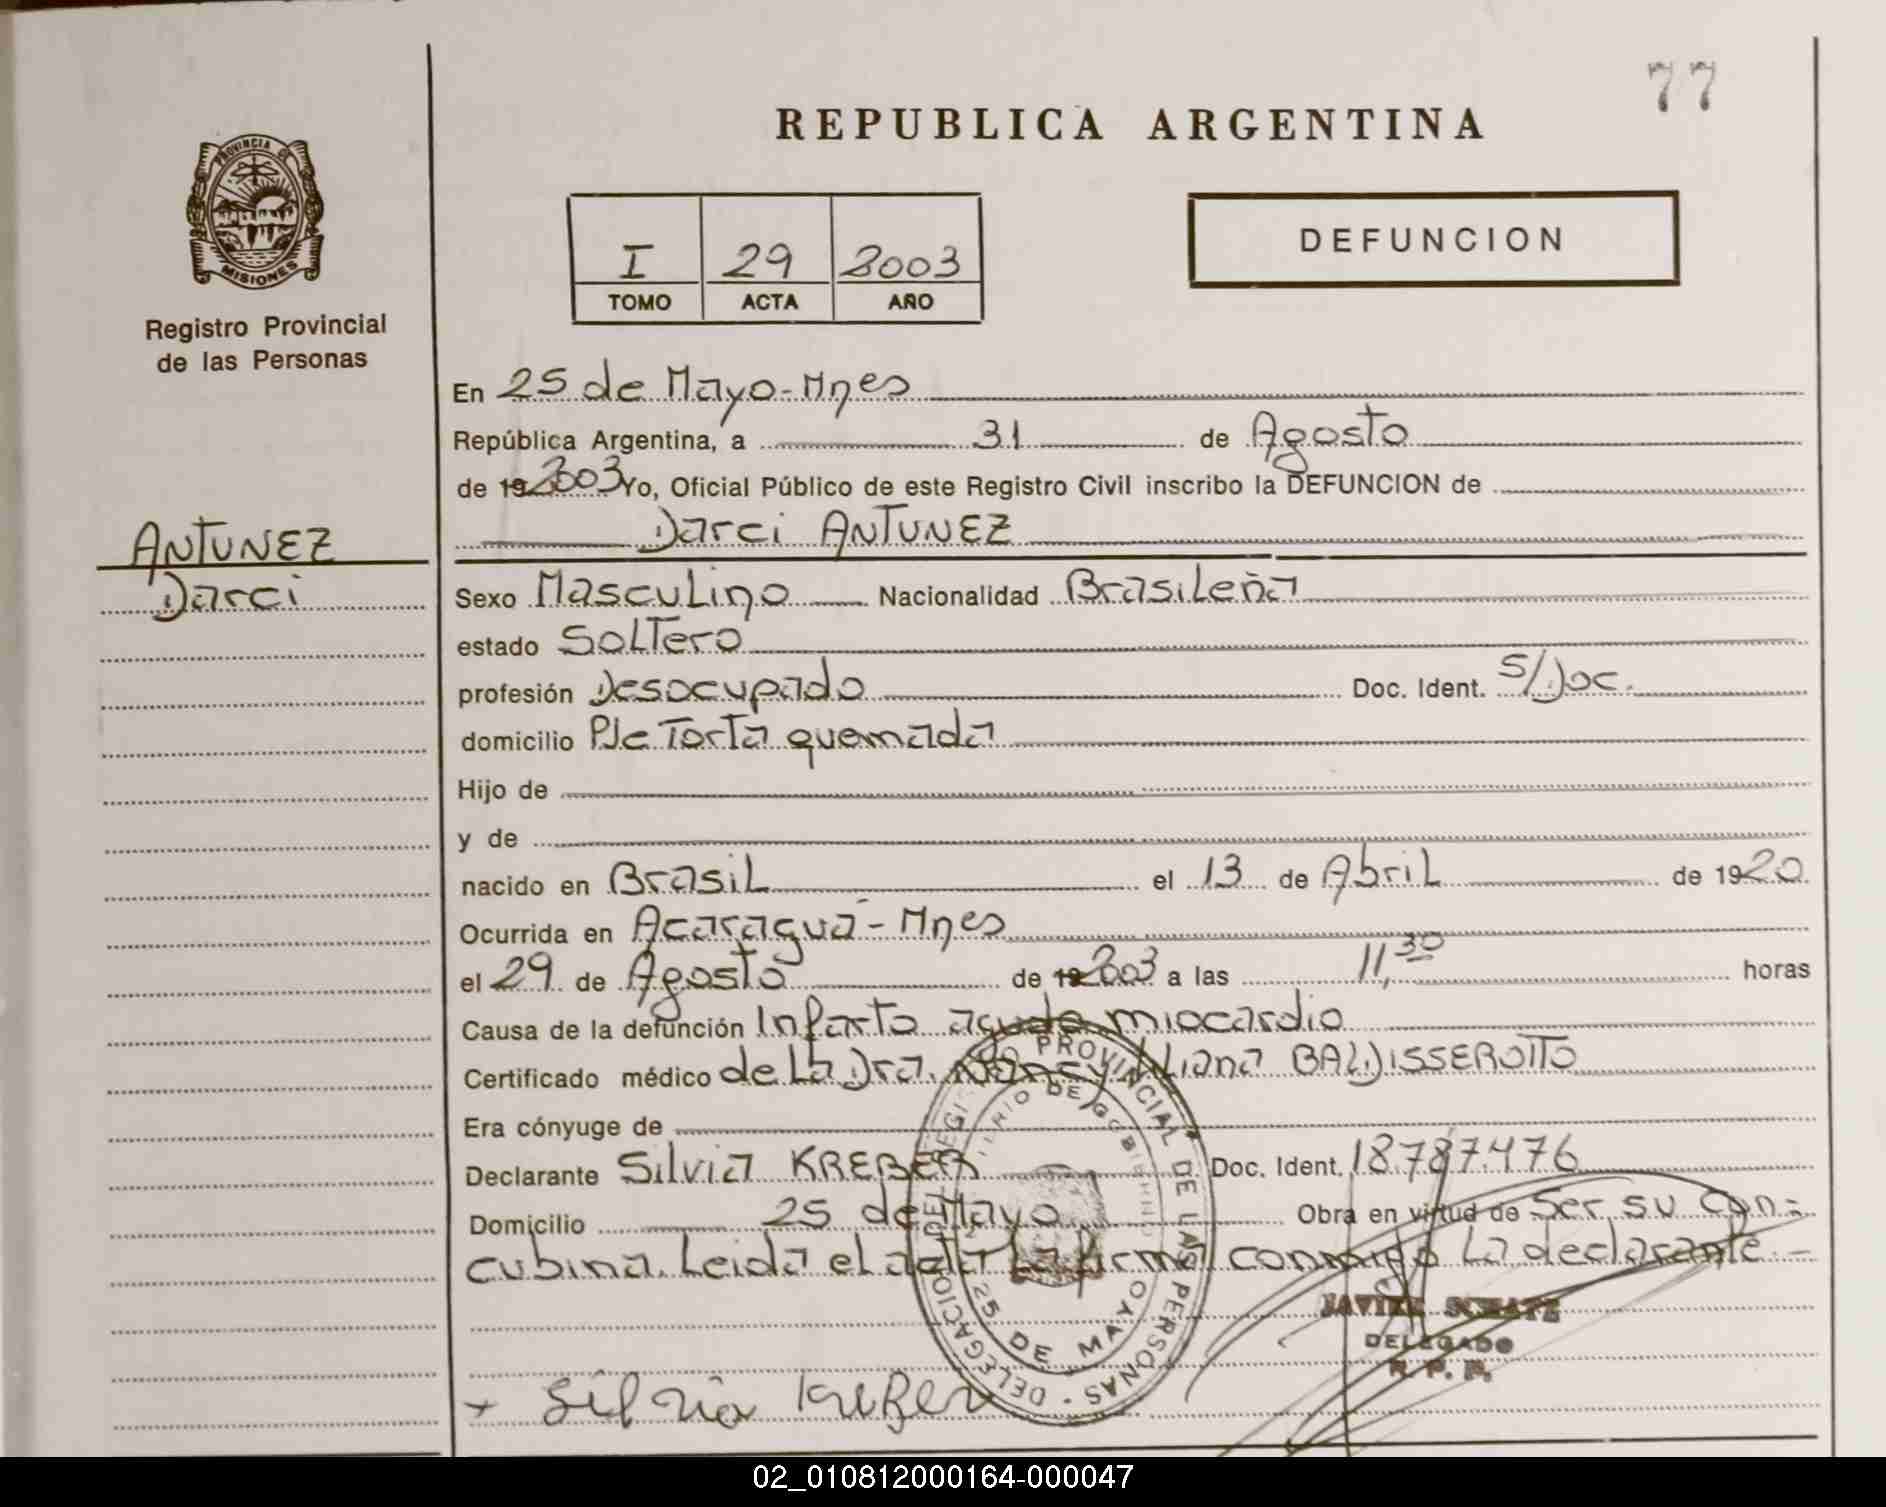 77
REPUBLICA ARGENTINA
PROVINCIA DE
MISIONES
Registro Provincial
de las Personas
I 29 2003
TOMO ACTA AÑO
DEFUNCION
En 25 de Mayo-Mnes
República Argentina, a 31 de Agosto
de 19 2003 Yo, Oficial Público de este Registro Civil inscribo la DEFUNCION de
Darci ANTUNEZ
ANTUNEZ
Darci
Sexo Masculino Nacionalidad Brasileña
estado Soltero
profesión Desocupado Doc. Ident. S/Doc.
domicilio Pje Torta quemada
Hijo de
y de
nacido en Brasil el 13 de Abril de 1920
Ocurrida en Acaraguá-Mnes
el 29 de Agosto de 19 2003 a las 11,30 horas
Causa de la defunción Infarto agudo miocardio
Certificado médico de La Dra. Nancy Liliana BALDISSEROTTO
Era cónyuge de
Declarante Silvia KREBER Doc. Ident. 18787476
Domicilio 25 de Mayo Obra en virtud de Ser su con-
cubina. Leida el acta La firma conmigo La declarante.-
PROVINCIAL DE LAS PERSONAS - DELEGACION
DE GOBIERNO
25 DE MAYO
JAVIER
DELEGADO
R. P. P.
Silvia Kreber
02_010812000164-000047